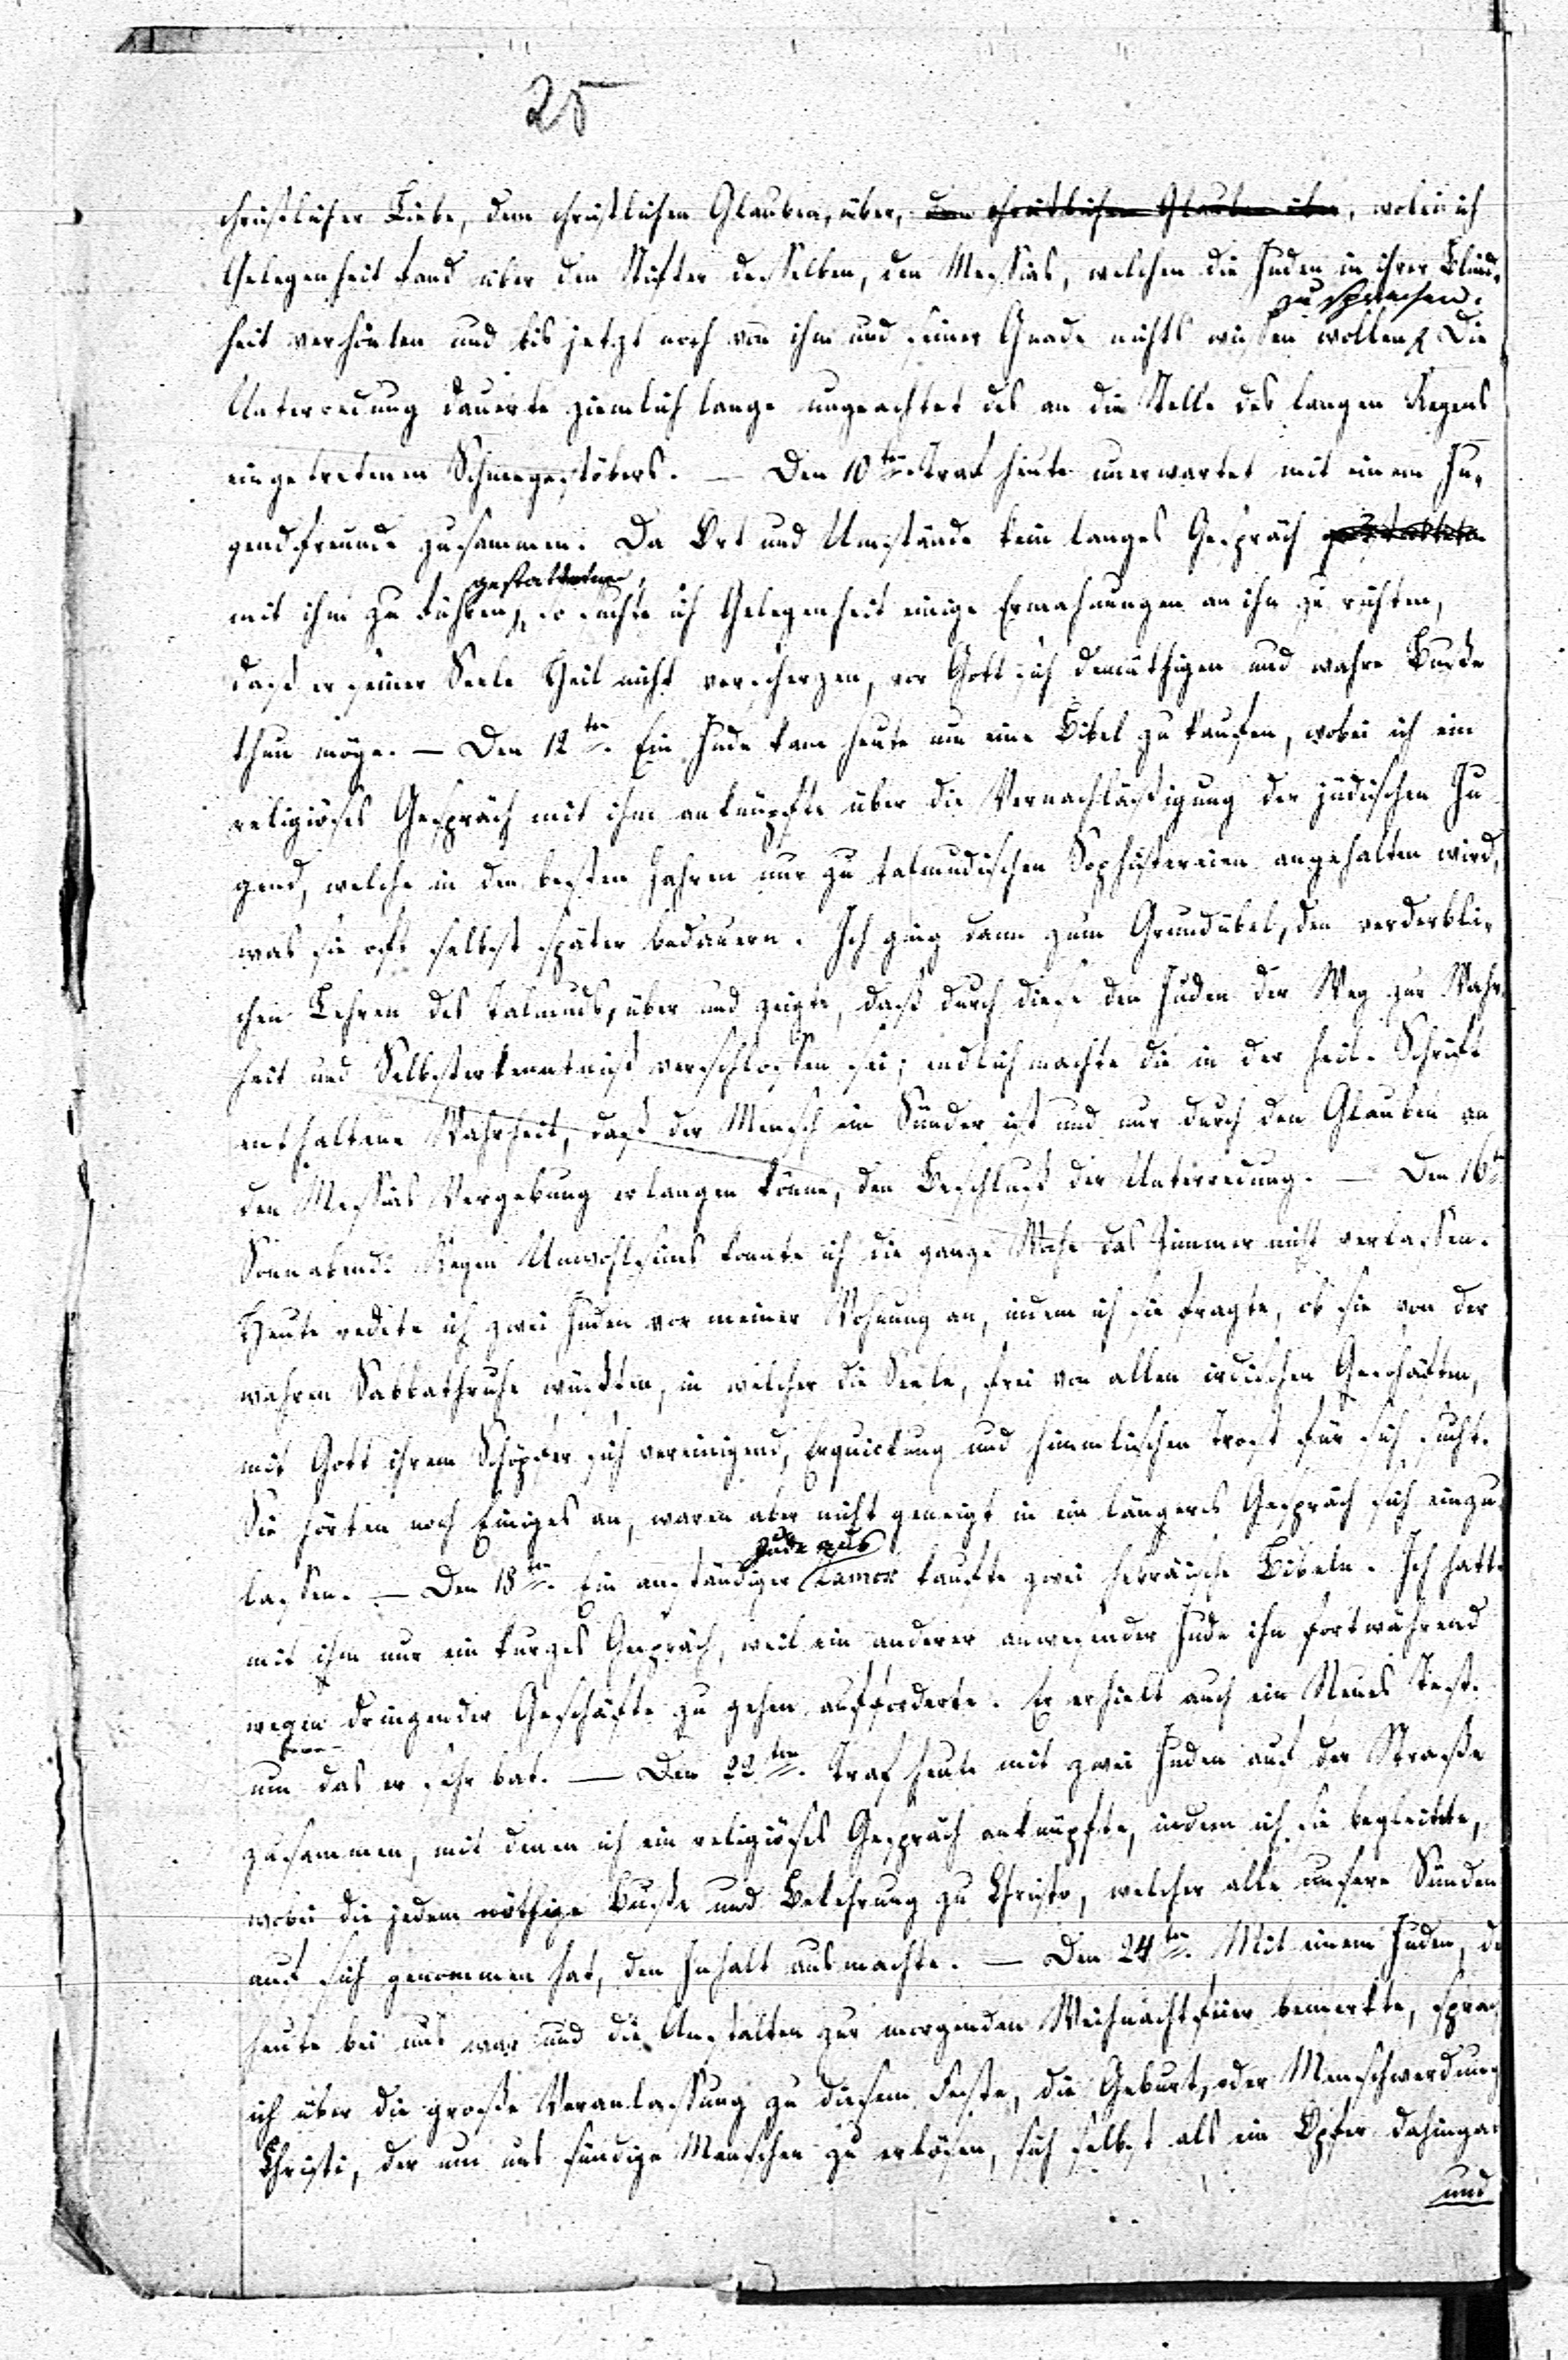 25
christlicher Liebe, dem christlichen Glauben, über, dem christlichen Glauben über, wobei ich
Gelegenheit fand über den Stifter desselben, den Messias, welchen die Juden in ihrer Blind-
zu sprechen.
heit verhönten und bis jetzt noch von ihm und seiner Gnade nichts wissen wollen. Die
Unterredung dauerte ziemlich lange ungeachtet des an die Stelle des langen Regens
eingetretenen Schneegestöbers. — Den 10ten Traf heute unerwartet mit einem Ju-
gendfreunde zusammen. Da Ort und Umstände kein langes Gespräch gestatteten
gestatteten,
mit ihm zu führen, so suchte ich Gelegenheit einige Ermahnungen an ihn zu richten,
daß er seiner Seele Heil nicht verscherzen, vor Gott sich demüthigen und wahre Buße
thun möge. — Den 12ten. Ein Jude kam heute um eine Bibel zu kaufen, wobei ich ein
religiöses Gespräch mit ihm anknüpfte über die Vernachläßigung der jüdischen Ju-
gend, welche in den besten Jahren nur zu talmudischen Sophistereien angehalten wird,
was sie oft selbst später bedauern. Ich ging dann zum Grundübel, den verderbli-
chen Lehren des Talmuds, über und zeigte, daß durch diese den Juden der Weg zur Wahr-
heit und Selbsterkenntniß verschlossen sei; endlich machte die in der heil. Schrift
enthaltene Wahrheit, daß der Mensch ein Sünder ist und nur durch den Glauben an
den Messias Vergebung erlangen könne, den Beschluß der Unterredung. — Den 16ten
Sonnabend. Wegen Unwohlseins konnte ich die ganze Woche das Zimmer nicht verlassen.
Heute redete ich zwei Juden vor meiner Wohnung an, indem ich sie fragte, ob sie von der
wahren Sabbathruhe wüßten, in welcher die Seele, frei von allen irdischen Geschäften,
mit Gott ihrem Schöpfer sich vereinigend, Erquickung und himmlischen Trost für sich sucht.
Sie hörten noch Einiges an, waren aber nicht geneigt in ein längeres Gespräch sich einzu-
Jude aus
lassen. — Den 18ten. Ein anständiger Zamos kaufte zwei hebräische Bibeln. Ich hatte
mit ihm nur ein kurzes Gespräch, weil ein anderer anwesender Jude ihn fortwährend
wegen dringender Geschäfte zu gehen aufforderte. Er erhielt auch ein Neues Test.
um das er sehr bat. — Den 22ten. Traf heute mit zwei Juden auf der Straße
zusammen, mit denen ich ein religiöses Gespräch anknüpfte, indem ich sie begleitete,
wobei die jedem nöthige Buße und Bekehrung zu Christo, welcher alle unsere Sünden
auf sich genommen hat, den Inhalt ausmachte. — Den 24ten. Mit einem Juden, de
heute bei uns war und die Anstalten zur morgenden Weihnachtfeier bemerkte, sprach
ich über die große Veranlassung zu diesem Feste, die Geburt, oder Menschwerdung
Christi, der um uns sündige Menschen zu erlösen, sich selbst als ein Opfer dahingab
und